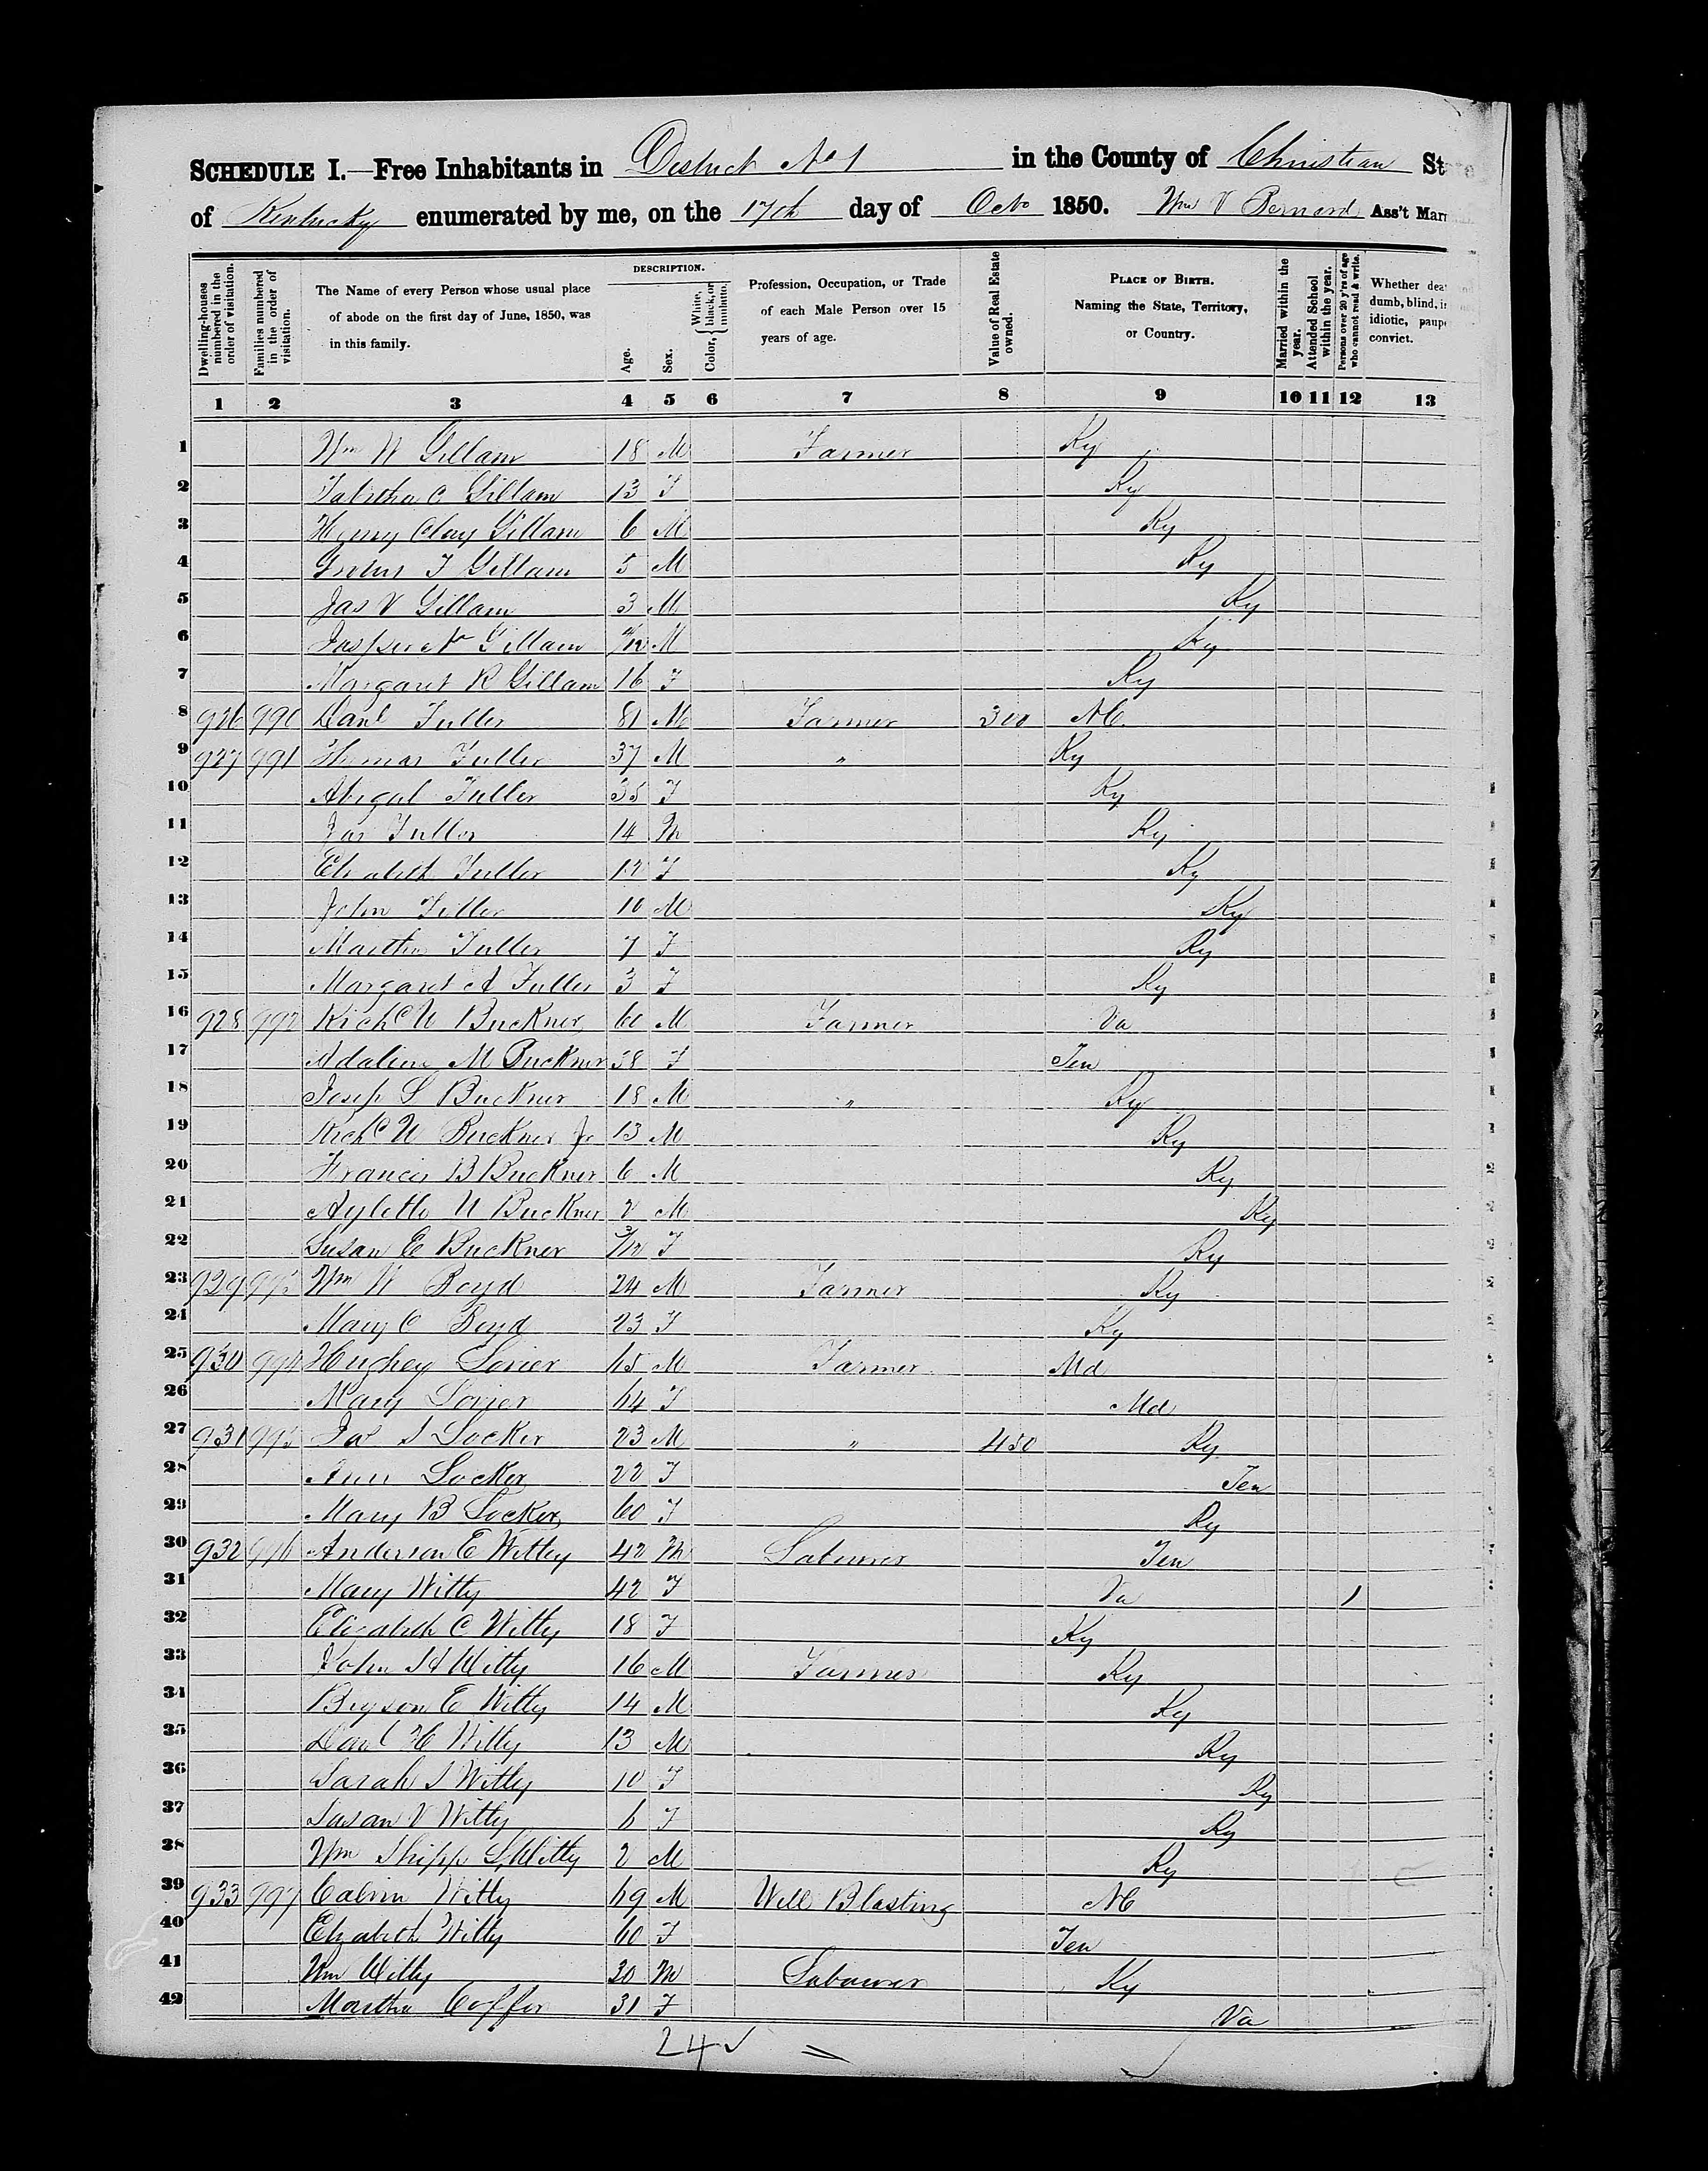 SCHEDULE I.—Free Inhabitants in District No 1 in the County of Christian
of Kentucky enumerated by me, on the 17th day of Octo 1850. Wm V Bernard Ass't
Dwelling-houses numbered in the order of visitation.
Families numbered in the order of visitation.
The Name of every Person whose usual place of abode on the first day of June, 1850, was in this family.
DESCRIPTION.
Age.
Sex.
Color, { White, black, or mulatto.
Profession, Occupation, or Trade of each Male Person over 15 years of age.
Value of Real Estate owned.
PLACE OF BIRTH. Naming the State, Territory, or Country.
Married within the year.
Attended School within the year.
Persons over 20 y'rs of age who cannot read & write.
Whether dumb, blind, idiotic, convict.
1 2 3 4 5 6 7 8 9 10 11 12 13
1 Wm W Gillam 18 M Farmer Ky
2 Tabitha C Gillam 13 F Ky
3 Henry Clay Gillam 6 M Ky
4 F Gillam 5 M Ky
5 Jas V Gillam 3 M Ky
6 Gillam M Ky
7 Margaret R Gillam 16 F Ky
8 926 990 Danl Fuller 81 M Farmer 300 NC
9 927 991 Thomas Fuller 37 M " Ky
10 Abigal Fuller 35 F Ky
11 Jas Fuller 14 M Ky
12 Elizabeth Fuller 12 F Ky
13 John Fuller 10 M Ky
14 Martha Fuller 7 F Ky
15 Margaret A Fuller 3 F Ky
16 928 992 Richd W Buckner 60 M Farmer Va
17 Adaline M Buckner 38 F Ten
18 Josep S Buckner 18 M " Ky
19 Richd W Buckner Jr 13 M Ky
20 Francis B Buckner 6 M Ky
21 Buckner 2 M Ky
22 Susan E Buckner 3/12 F Ky
23 929 993 Wm W Boyd 24 M Farmer Ky
24 Mary C Boyd 23 F Ky
25 930 994 Hughey M Farmer Md
26 Mary 64 F Md
27 931 995 Jas S Locker 23 M " 450 Ky
28 Ann Locker 22 F Ten
29 Mary B Locker 60 F Ky
30 932 996 Anderson E Wittey 42 M Labourer Ten
31 Mary Witty 42 F Va 1
32 Elizabeth C Witty 18 F Ky
33 John Witty 16 M Farmer Ky
34 Bryson E Witty 14 M Ky
35 Danl H Witty 13 M Ky
36 Sarah J Witty 10 F Ky
37 Susan V Witty 6 F Ky
38 Wm Shipp S Witty 2 M Ky
39 933 997 Calvin Witty 69 M Well Blasting NC
40 Elizabeth Witty 60 F Ten
41 Wm Witty 30 M Labourer Ky
42 Martha Coffer 31 F Va
24